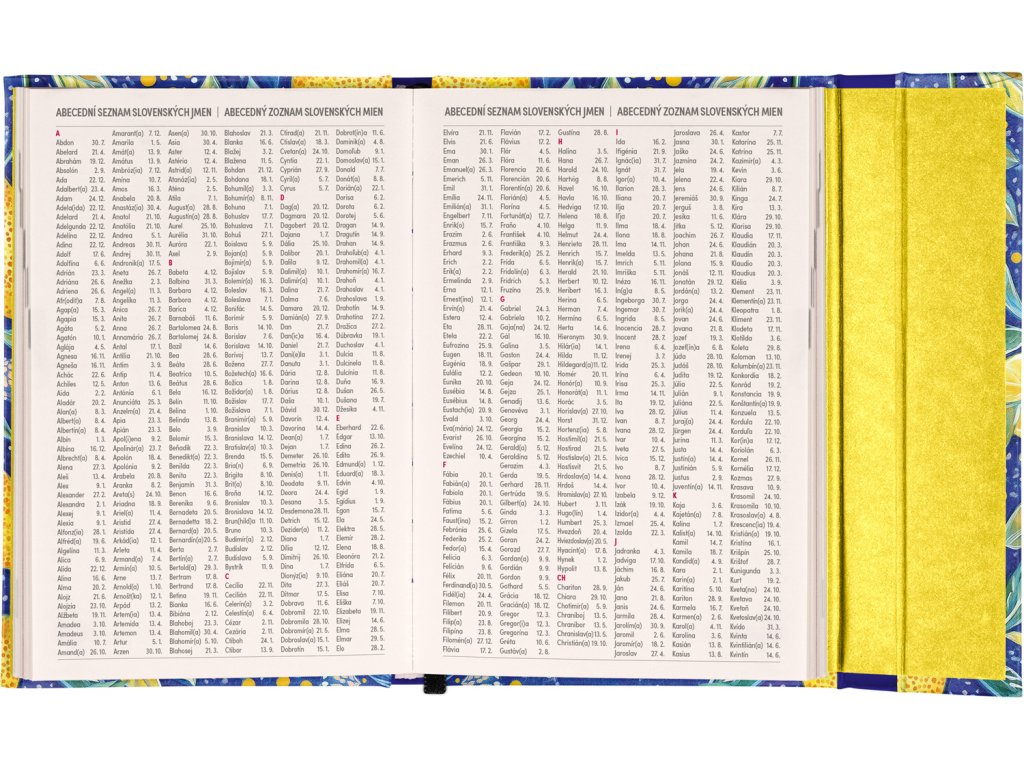 ABECEDNÍ SEZNAM SLOVENSKÝCH JMEN | ABECEDNÝ ZOZNAM SLOVENSKÝCH MIEN
A
Abdon 30. 7.
Abelard 21. 4.
Abrahám 19. 12.
Absolón 2. 9.
Ada 22. 12.
Adalbert(a) 23. 4.
Adam 24. 12.
Adela(ida) 22. 12.
Adelard 21. 4.
Adelgunda 22. 12.
Adelína 22. 12.
Adina 22. 12.
Adolf 17. 6.
Adolfína 6. 6.
Adrián 23. 3.
Adriána 26. 6.
Adriena 26. 6.
Afr(odit)a 7. 8.
Agap(a) 15. 3.
Agapia 15. 3.
Agáta 5. 2.
Agatón 10. 1.
Aglája 4. 5.
Agnesa 16. 11.
Agneša 16. 11.
Achác 22. 6.
Achiles 12. 5.
Aida 2. 2.
Aladár 20. 2.
Alan(a) 8. 3.
Albert(a) 8. 4.
Albertín(a) 8. 4.
Albín 1. 3.
Albína 16. 12.
Albrecht(a) 8. 4.
Alena 27. 3.
Aleš 9. 1.
Alex 9. 1.
Alexander 27. 2.
Alexandra 2. 1.
Alexej 9. 1.
Alexia 9. 1.
Alfonz(ia) 28. 1.
Alfréd(a) 19. 6.
Algelína 11. 3.
Alica 6. 9.
Alida 22. 12.
Alina 16. 6.
Alma 20. 2.
Alojz 21. 6.
Alojzia 23. 10.
Alžbeta 19. 11.
Amadea 3. 10.
Amadeus 3. 10.
Amália 10. 7.
Amand(a) 26. 10.
Amarant(a) 7. 12.
Amarila 1. 5.
Amát(a) 13. 9.
Amátus 13. 9.
Ambróz(ia) 7. 12.
Amína 10. 7.
Amos 16. 3.
Anabela 20. 8.
Anastáz(a) 30. 4.
Anatol 21. 10.
Anatólia 21. 10.
Andrea 5. 1.
Andreas 30. 11.
Andrej 30. 11.
Andronik(a) 17. 5.
Aneta 26. 7.
Anežka 2. 3.
Angel(a) 11. 3.
Angelika 11. 3.
Anica 26. 7.
Anita 26. 7.
Anna 26. 7.
Annamária 26. 7.
Antal 17. 1.
Antília 21. 10.
Antim 3. 9.
Antip 11. 4.
Anton 13. 6.
Antónia 6. 1.
Anunciáta 25. 3.
Anzelm(a) 21. 4.
Apia 23. 3.
Apián 23. 3.
Apol(i)ena 9. 2.
Apolinár(a) 23. 7.
Apolón 18. 4.
Apolónia 9. 2.
Arabela 20. 8.
Aranka 8. 2.
Areta(s) 24. 10.
Ariadna 18. 9.
Ariel(a) 11. 4.
Aristid 27. 4.
Aristída 27. 4.
Arkád(ia) 12. 1.
Arleta 11. 4.
Armand(a) 7. 4.
Armin(a) 10. 5.
Arne 13. 7.
Arnold(a) 1. 10.
Arnošt(ka) 12. 1.
Arpád 13. 2.
Artem(ia) 13. 4.
Artemída 13. 4.
Artemon 13. 4.
Artur 5. 1.
Arzen 30. 10.
Asen(a) 30. 10.
Asia 30. 4.
Aster 12. 4.
Astéria 12. 4.
Astrid(a) 12. 11.
Atanáz(a) 2. 5.
Aténa 2. 5.
Atila 7. 1.
August(a) 28. 8.
Augustín(a) 28. 8.
Aurel 25. 10.
Aurélia 31. 10.
Auróra 22. 1.
Axel 2. 9.
B
Babeta 4. 12.
Balbína 31. 3.
Barbara 4. 12.
Barbora 4. 12.
Barica 4. 12.
Barnabáš 11. 6.
Bartolomea 24. 8.
Bartolomej 24. 8.
Bazil 14. 6.
Bea 28. 6.
Beáta 28. 6.
Beatrica 10. 5.
Beátus 28. 6.
Bela 16. 12.
Belín 11. 10.
Belina 1. 10.
Belinda 13. 8.
Belo 3. 9.
Belomír 15. 3.
Beňadik 22. 3.
Benedikt(a) 22. 3.
Benilda 22. 3.
Benita 22. 3.
Benjamín 31. 3.
Benon 16. 6.
Berenika 9. 6.
Bernadeta 20. 5.
Bernadetta 18. 2.
Bernard(a) 20. 5.
Bernardín(a) 20. 5.
Berta 2. 7.
Bertín(a) 2. 7.
Bertold(a) 29. 3.
Bertram 17. 8.
Bertrand 17. 8.
Betina 19. 11.
Bianka 16. 6.
Bibiána 2. 12.
Blahoboj 23. 3.
Blahomil(a) 30. 4.
Blahomír(a) 5. 10.
Blahosej 21. 3.
Blahoslav 21. 3.
Blanka 16. 6.
Blažej 3. 2.
Blažena 11. 5.
Bohdan 21. 12.
Bohdana 18. 1.
Bohumil(a) 3. 3.
Bohumír(a) 8. 11.
Bohuna 7. 1.
Bohuslav 17. 7.
Bohuslava 7. 1.
Bohuš 27. 1.
Boislava 5. 9.
Bojan(a) 5. 9.
Bojimír(a) 5. 9.
Bojislav 5. 9.
Bolemír(a) 16. 3.
Boleslav 16. 3.
Boleslava 7. 1.
Bonifác 14. 5.
Borimír 5. 9.
Boris 14. 10.
Borislav 7. 6.
Borislava 14. 10.
Borivoj 13. 7.
Božena 27. 7.
Božetech(a) 16. 6.
Božica 1. 8.
Božidar(a) 1. 8.
Božislav 17. 7.
Božislava 7. 1.
Branimír(a) 5. 9.
Branislav 10. 3.
Branislava 14. 12.
Bratislav(a) 10. 3.
Brenda 15. 5.
Bria(n) 6. 9.
Brigita 8. 10.
Brit(a) 8. 10.
Broňa 14. 12.
Bronislav 10. 3.
Bronislava 14. 12.
Brun(hild)a 11. 10.
Bruno 10. 3.
Budimír(a) 2. 12.
Budislav 2. 12.
Budislava 5. 9.
Bystrík 11. 9.
C
Cecília 22. 11.
Cecilián 22. 11.
Celerín(a) 3. 2.
Celestín(a) 6. 4.
Cézar 2. 11.
Cezária 2. 11.
Ctibob 24. 1.
Ctibor 13. 9.
Ctirad(a) 21. 11.
Ctislav(a) 18. 3.
Cvetan(a) 24. 10.
Cyntia 22. 1.
Cyprián 27. 9.
Cyril(a) 5. 7.
Cyrus 5. 7.
D
Dag(a) 20. 12.
Dagmara 20. 12.
Dagobert 20. 12.
Dajana 1. 7.
Dália 25. 10.
Dalibor 20. 1.
Dalila 9. 12.
Dalimil(a) 10. 1.
Dalimír(a) 10. 1.
Dalina 21. 7.
Dalma 7. 6.
Damara 20. 12.
Damián(a) 27. 2.
Dan 21. 7.
Dan(ic)a 16. 4.
Daniel 21. 7.
Dani(e)la 3. 1.
Danuta 3. 1.
Dária 12. 8.
Darina 12. 8.
Dárius 12. 8.
Daša 10. 1.
Dávid 30. 12.
Davorín 12. 4.
Davorína 14. 4.
Dean(a) 1. 7.
Dejan 10. 2.
Demeter 26. 10.
Demetria 26. 10.
Denis(a) 1. 11.
Deodata 9. 11.
Deora 24. 4.
Desana 3. 5.
Desdemona 28. 11.
Detrich 15. 12.
Dezider(ia) 11. 2.
Diana 1. 7.
Dília 12. 12.
Dimitrij 26. 10.
Dina 1. 7.
Dionýz(ia) 9. 10.
Dita 27. 3.
Ditmar 17. 5.
Dobrava 11. 6.
Dobromil 22. 10.
Dobromila 28. 10.
Dobromír(a) 21. 5.
Dobroslav(a) 15. 1.
Dobrotín 15. 1.
Dobrot(ín)a 11. 6.
Dominik(a) 4. 8.
Domoľub 9. 1.
Domoslav(a) 15. 1.
Donald 7. 7.
Donát(a) 8. 8.
Dorián(a) 22. 1.
Dorisa 6. 2.
Dorota 6. 2.
Dorotej 5. 6.
Dragan 14. 9.
Dragutín 14. 9.
Drahan 14. 9.
Drahoľub(a) 4. 1.
Drahomil(a) 4. 1.
Drahomír(a) 16. 7.
Drahoň 4. 1.
Drahoslav 4. 1.
Drahoslava 1. 9.
Drahotín 14. 9.
Drahotína 27. 2.
Dražica 27. 2.
Dúbravka 19. 1.
Duchoslav 4. 1.
Dulcia 11. 8.
Dulcinela 11. 8.
Dulcínia 11. 8.
Duňo 16. 9.
Dušan 26. 5.
Dušana 19. 7.
Džesika 4. 11.
E
Eberhard 22. 6.
Edgar 13. 10.
Edina 26. 2.
Edita 26. 9.
Edmund(a) 1. 12.
Eduard(a) 18. 3.
Edvin 4. 10.
Egid 1. 9.
Egidius 1. 9.
Egon 15. 7.
Ela 24. 5.
Elektra 28. 5.
Elemír 28. 2.
Elena 18. 8.
Eleonóra 21. 2.
Elfrída 6. 5.
Eliána 20. 7.
Eliáš 20. 7.
Elisa 7. 10.
Eliška 7. 10.
Elizabeta 19. 11.
Elizej 14. 6.
Elma 28. 5.
Elmar 29. 5.
Elo 28. 2.
ABECEDNÍ SEZNAM SLOVENSKÝCH JMEN | ABECEDNÝ ZOZNAM SLOVENSKÝCH MIEN
Elvíra 21. 11.
Elvis 21. 6.
Ema 30. 1.
Eman 26. 3.
Emanuel(a) 26. 3.
Emerich 5. 11.
Emil 31. 1.
Emília 24. 11.
Emilián(a) 31. 1.
Engelbert 7. 11.
Enrik(o) 15. 7.
Erazim 2. 6.
Erazmus 2. 6.
Erhard 9. 3.
Erich 2. 2.
Erik(a) 2. 2.
Ermelinda 2. 9.
Erna 12. 1.
Ernest(ína) 12. 1.
Ervín(a) 21. 4.
Estera 12. 4.
Eta 28. 11.
Etela 22. 2.
Eufrozína 25. 9.
Eugen 18. 11.
Eugénia 18. 9.
Eulália 12. 2.
Eunika 20. 10.
Eusébia 14. 8.
Eusébius 14. 8.
Eustach(ia) 20. 9.
Evald 3. 10.
Eva(mária) 24. 12.
Evarist 26. 10.
Evelína 24. 12.
Ezechiel 10. 4.
F
Fábia 20. 1.
Fabián(a) 20. 1.
Fabiola 20. 1.
Fábius 20. 1.
Fatima 5. 6.
Faust(ína) 15. 2.
Febrónia 25. 6.
Federika 25. 2.
Fedor(a) 15. 4.
Felícia 6. 3.
Felicián 9. 6.
Félix 20. 11.
Ferdinand(a) 30. 5.
Fidél(ia) 24. 4.
Filemon 20. 11.
Filibert 20. 9.
Filip(a) 23. 8.
Filipína 23. 8.
Filomén(a) 27. 12.
Flávia 17. 2.
Flavián 17. 2.
Flávius 17. 2.
Flór 4. 5.
Flóra 11. 6.
Florencia 20. 6.
Florencián 20. 6.
Florentín(a) 20. 6.
Florián(a) 4. 5.
Florína 4. 5.
Fortunát(a) 12. 7.
Fraňo 4. 10.
František 4. 10.
Františka 9. 3.
Frederik(a) 25. 2.
Frída 6. 5.
Fridolín(a) 6. 3.
Fridrich 5. 3.
Fruzína 25. 9.
G
Gabriel 24. 3.
Gabriela 10. 2.
Gaja(na) 24. 12.
Gál 16. 10.
Galina 3. 5.
Gaston 24. 4.
Gašpar 29. 1.
Gedeon 10. 10.
Geja 24. 12.
Gejza 25. 1.
Genadij 13. 6.
Genovéva 3. 1.
Georg 24. 4.
Georgia 15. 2.
Georgína 15. 2.
Gerald(a) 5. 12.
Geraldína 5. 12.
Gerazim 4. 3.
Gerda 19. 5.
Gerhard 28. 11.
Gertrúda 19. 5.
Gilbert(a) 24. 10.
Ginda 3. 3.
Girron 1. 2.
Gizela 17. 5.
Goran 24. 2.
Gorazd 27. 7.
Gordan(a) 9. 9.
Gordián 9. 9.
Gordon 9. 9.
Gothard 5. 5.
Grácia 18. 12.
Gracián(a) 18. 12.
Gregor 12. 3.
Gregor(i)a 12. 3.
Gregorína 12. 3.
Gréta 10. 6.
Gustáv(a) 2. 8.
Gustína 28. 8.
H
Halina 3. 5.
Hana 26. 7.
Harold 24. 10.
Hartvig 8. 8.
Havel 16. 10.
Havla 16. 10.
Hedviga 17. 10.
Helena 18. 8.
Helga 11. 9.
Helmut 24. 4.
Henrieta 28. 11.
Henrich 15. 7.
Henrik(a) 15. 7.
Herald 21. 10.
Herbert 10. 12.
Heribert 16. 3.
Herina 6. 5.
Herman 7. 4.
Hermína 16. 5.
Herta 14. 6.
Hieronym 30. 9.
Hilár(ia) 14. 1.
Hilda 11. 12.
Hildegard(a) 11. 12.
Homér 20. 11.
Honór(a) 10. 9.
Honorát(a) 11. 1.
Horác 3. 5.
Horislav(a) 27. 10.
Horst 31. 12.
Hortenz(ia) 5. 8.
Hostimil(a) 21. 5.
Hostirad 21. 5.
Hostislav(a) 21. 5.
Hostisvit 21. 5.
Hrdoslav(a) 14. 4.
Hrdoš 14. 4.
Hromislav(a) 27. 10.
Hubert 3. 11.
Hugo(lín) 1. 4.
Humbert 25. 3.
Hvezdoň 20. 4.
Hviezdoslav(a) 20. 5.
Hyacint(a) 17. 8.
Hynek 1. 2.
Hypolit 13. 8.
CH
Chariton 28. 9.
Chiara 29. 10.
Chotimír(a) 5. 9.
Chraniboj 13. 5.
Chranibor 13. 5.
Chranislav(a) 13. 5.
Christián(a) 19. 10.
I
Ida 16. 2.
Ifigénia 21. 9.
Ignác(ia) 31. 7.
Ignát 31. 7.
Igor(a) 10. 4.
Ilarion 28. 3.
Iliana 20. 7.
Iľja 20. 7.
Iľja 20. 7.
Ilma 18. 4.
Ilona 18. 8.
Ima 14. 11.
Imelda 13. 5.
Imrich 5. 11.
Imriška 5. 11.
Inéza 16. 11.
In(g)a 8. 5.
Ingeborga 30. 7.
Ingemar 30. 7.
Ingrida 8. 5.
Inocencia 28. 7.
Inocent 28. 7.
Irena 6. 4.
Irenej 3. 7.
Irida 25. 3.
Irína 6. 4.
Irisa 25. 3.
Irma 14. 11.
Ita 19. 12.
Iva 28. 12.
Ivan 8. 7.
Ivana 28. 12.
Ivar 10. 4.
Iveta 27. 5.
Ivica 15. 12.
Ivo 8. 7.
Ivona 28. 12.
Ivor 10. 4.
Izabela 9. 12.
Izák 19. 10.
Izidor(a) 4. 4.
Izmael 25. 4.
Izolda 22. 3.
J
Jadranka 4. 3.
Jadviga 17. 10.
Jáchim 16. 8.
Jakub 25. 7.
Ján 24. 6.
Jana 21. 8.
Janis 24. 6.
Jarmila 28. 4.
Jarolím(a) 30. 9.
Jaromil 2. 6.
Jaromír(a) 18. 2.
Jaroslav 27. 4.
Jaroslava 26. 4.
Jasna 30. 1.
Jaško 24. 6.
Jazmína 24. 2.
Jela 19. 4.
Jelena 22. 4.
Jens 24. 6.
Jeremiáš 30. 9.
Jerguš 3. 8.
Jesika 11. 6.
Jitka 5. 12.
Joachim 26. 7.
Johan 24. 6.
Johana 21. 8.
Jolana 15. 9.
Jonáš 12. 11.
Jonatán 29. 12.
Jordán(a) 13. 2.
Jorga 24. 4.
Jorik(a) 24. 4.
Jovan 24. 6.
Jovana 21. 8.
Jozef 19. 3.
Jozef(ín)a 6. 8.
Júda 28. 10.
Judáš 28. 10.
Judita 19. 12.
Júlia 22. 5.
Julián 9. 1.
Juliána 22. 5.
Július 11. 4.
Juraj(a) 24. 4.
Jürgen 24. 4.
Jurina 11. 3.
Justa 14. 4.
Justín(a) 14. 4.
Justinián 5. 9.
Justus 2. 9.
Juventín(a) 14. 11.
K
Kaja 3. 6.
Kajetán(a) 7. 8.
Kalina 1. 7.
Kalist(a) 14. 10.
Kamil 14. 7.
Kamila 18. 7.
Kandid(a) 4. 9.
Kara 2. 1.
Karin(a) 2. 1.
Karitína 5. 10.
Kariton 28. 9.
Karmela 16. 7.
Karmen(a) 2. 6.
Karol(a) 4. 11.
Karolína 3. 6.
Kasián 13. 8.
Kasius 13. 8.
Kastor 7. 7.
Katarína 25. 11.
Katrína 25. 11.
Kazimír(a) 4. 3.
Kevin 3. 6.
Kiara 29. 10.
Kilián 8. 7.
Kinga 24. 7.
Kira 13. 3.
Klára 29. 10.
Klarisa 29. 10.
Klaudia 17. 11.
Klaudián 20. 3.
Klaudín 20. 3.
Klaudio 20. 3.
Klaudius 20. 3.
Klélia 3. 9.
Klement 23. 11.
Klementín(a) 23. 11.
Kleopatra 1. 8.
Kliment 23. 11.
Klodeta 17. 11.
Klotilda 3. 6.
Koleta 29. 8.
Koloman 13. 10.
Kolumbín(a) 23. 11.
Konkordia 18. 2.
Konrád 19. 2.
Konstancia 19. 9.
Konštantín(a) 19. 9.
Konzuela 13. 5.
Kordula 22. 10.
Korduľa 22. 10.
Kor(in)a 17. 12.
Koriolán 6. 3.
Kornel 26. 11.
Kornélia 17. 12.
Kozmas 27. 9.
Krasava 10. 9.
Krasomil 24. 10.
Krasomila 10. 10.
Krasoslav(a) 4. 8.
Krescenc(ia) 19. 4.
Kristián(a) 19. 10.
Kristína 16. 1.
Krišpín 25. 10.
Krištof 28. 7.
Kunigunda 3. 3.
Kurt 19. 2.
Kveta(na) 24. 10.
Kvetava 24. 10.
Kvetoň 24. 10.
Kvetoslav(a) 24. 10.
Kvído 31. 3.
Kvinta 14. 6.
Kvintilián(a) 14. 6.
Kvintín 14. 6.